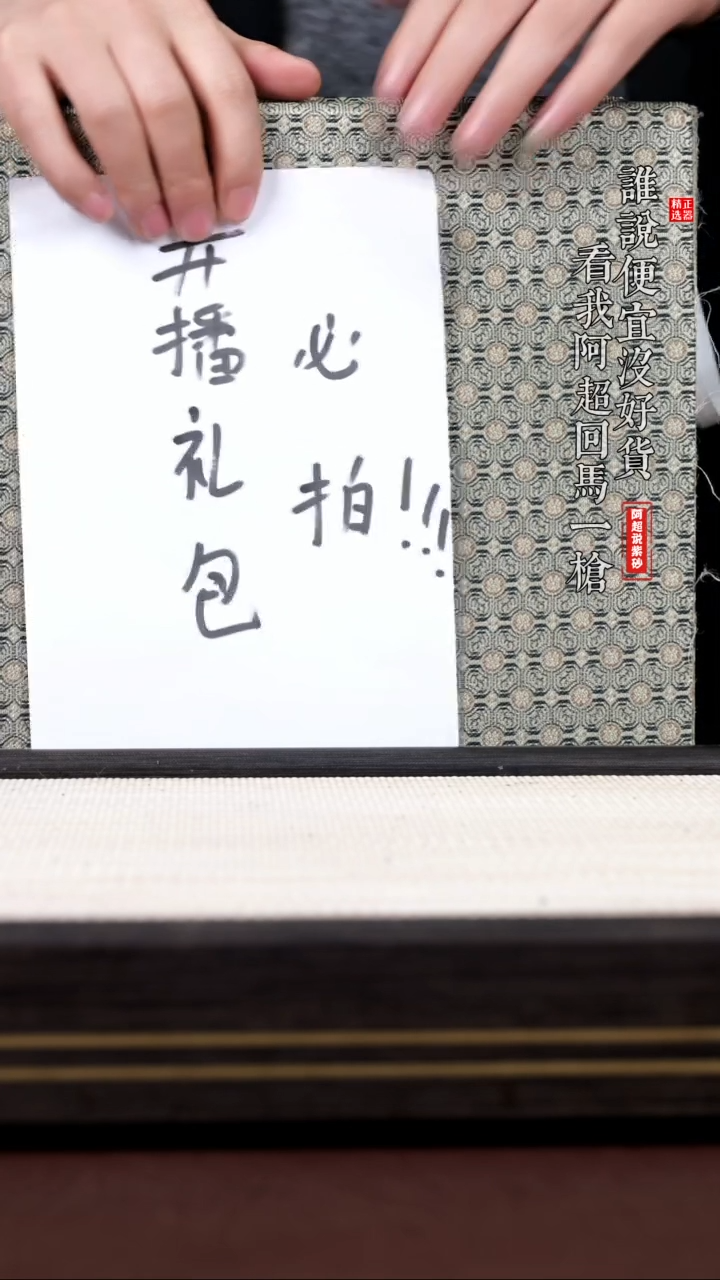 开播礼包
必拍!!!
誰說便宜沒好貨
看我阿超回馬一槍
正器
精选
阿超说紫砂